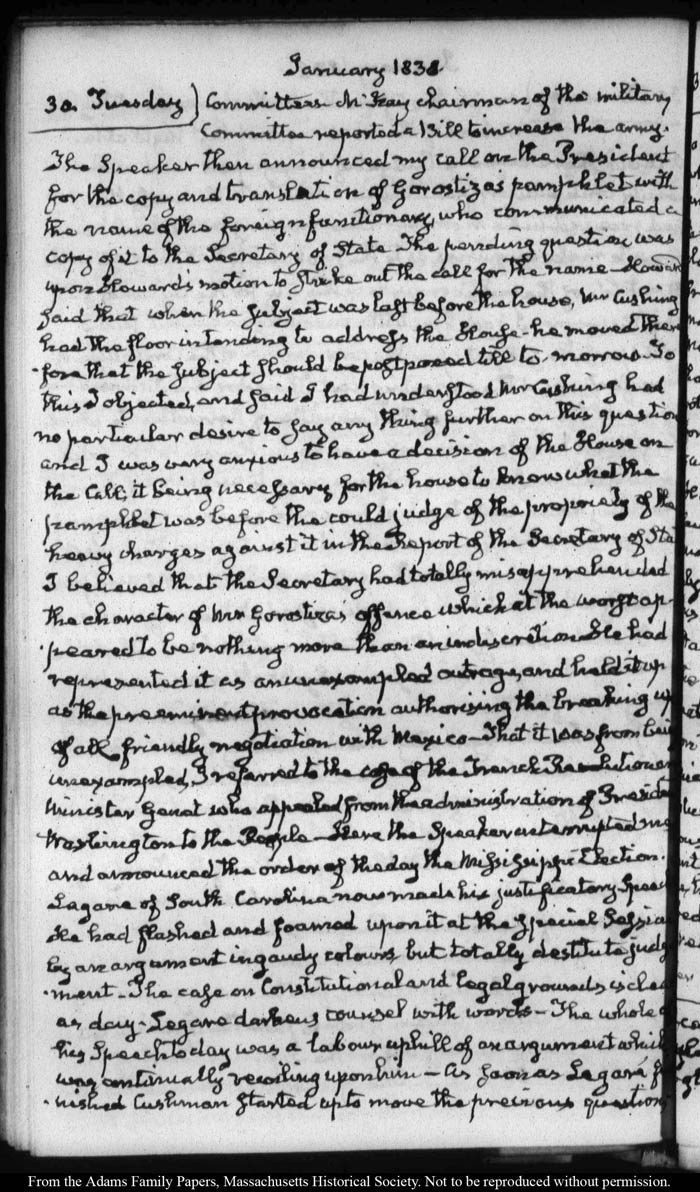 January 1838.
30. Tuesday) Committees. McKay chairman of the military
Committee reported a Bill to increase the army.
The Speaker then announced my call on the President
for the copy and translation of Gorostiza's pamphlet with
the name of the foreign functionary, who communicated a
copy of it to the Secretary of State The pending question was
upon Howard's motion to strike out the call for the name—Howard
said that when the subject was last before the house, Mr Cushing
had the floor intending to address the House—he moved there
fore that the subject should be postponed till to-morrow. To
this I objected, and said I had understood Mr Cushing had
no particular desire to say any thing further on this question
and I was very anxious to have a decision of the House on
the Call; it being necessary for the house to know what the
pamphlet was before the could judge of the propriety of the
heavy charges against it in the Report of the Secretary of Sta
I believed that the Secretary had totally misapprehended
the character of Mr Gorostiza's offence which at the worst ap-
-peared to be nothing more than an indiscretion He had
represented it as an unexampled outrage, and held it up
as the preeminent provocation authorising the breaking up
of all friendly negotiation with Mexico—That it was from being
unexampled, I referred to the case of the French Revolutionary
Minister Genet who appealed from the administration of Preside
Washington to the People—Here the Speaker interrupted me
and announced the order of the day the Mississippi Election.
Legare of South Carolina now made his justificatory Speech
He had flashed and foamed upon it at the special Session
by an argument in gaudy colours, but totally destitute judg
-ment—The case on Constitutional and legal grounds is clea
as day—Legare darkens counsel with words—The whole of
his Speech to day was a labour uphill of an argument which
was continually recoiling upon him—As soon as Legaré fi
-nished Cushman started up to move the previous question,
From the Adams Family Papers, Massachusetts Historical Society. Not to be reproduced without permission.